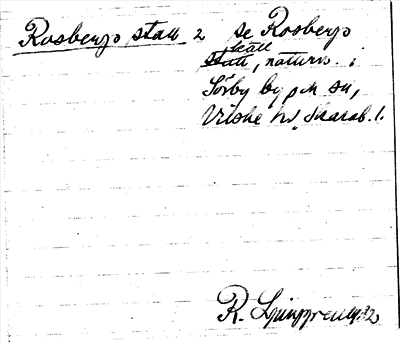 Rosbergs stall 2 se Rosbergs
käll
stall, naturn. i
Sörby by och sn,
Vilske hd, Skarab. l.
R. Ljunggren 1932